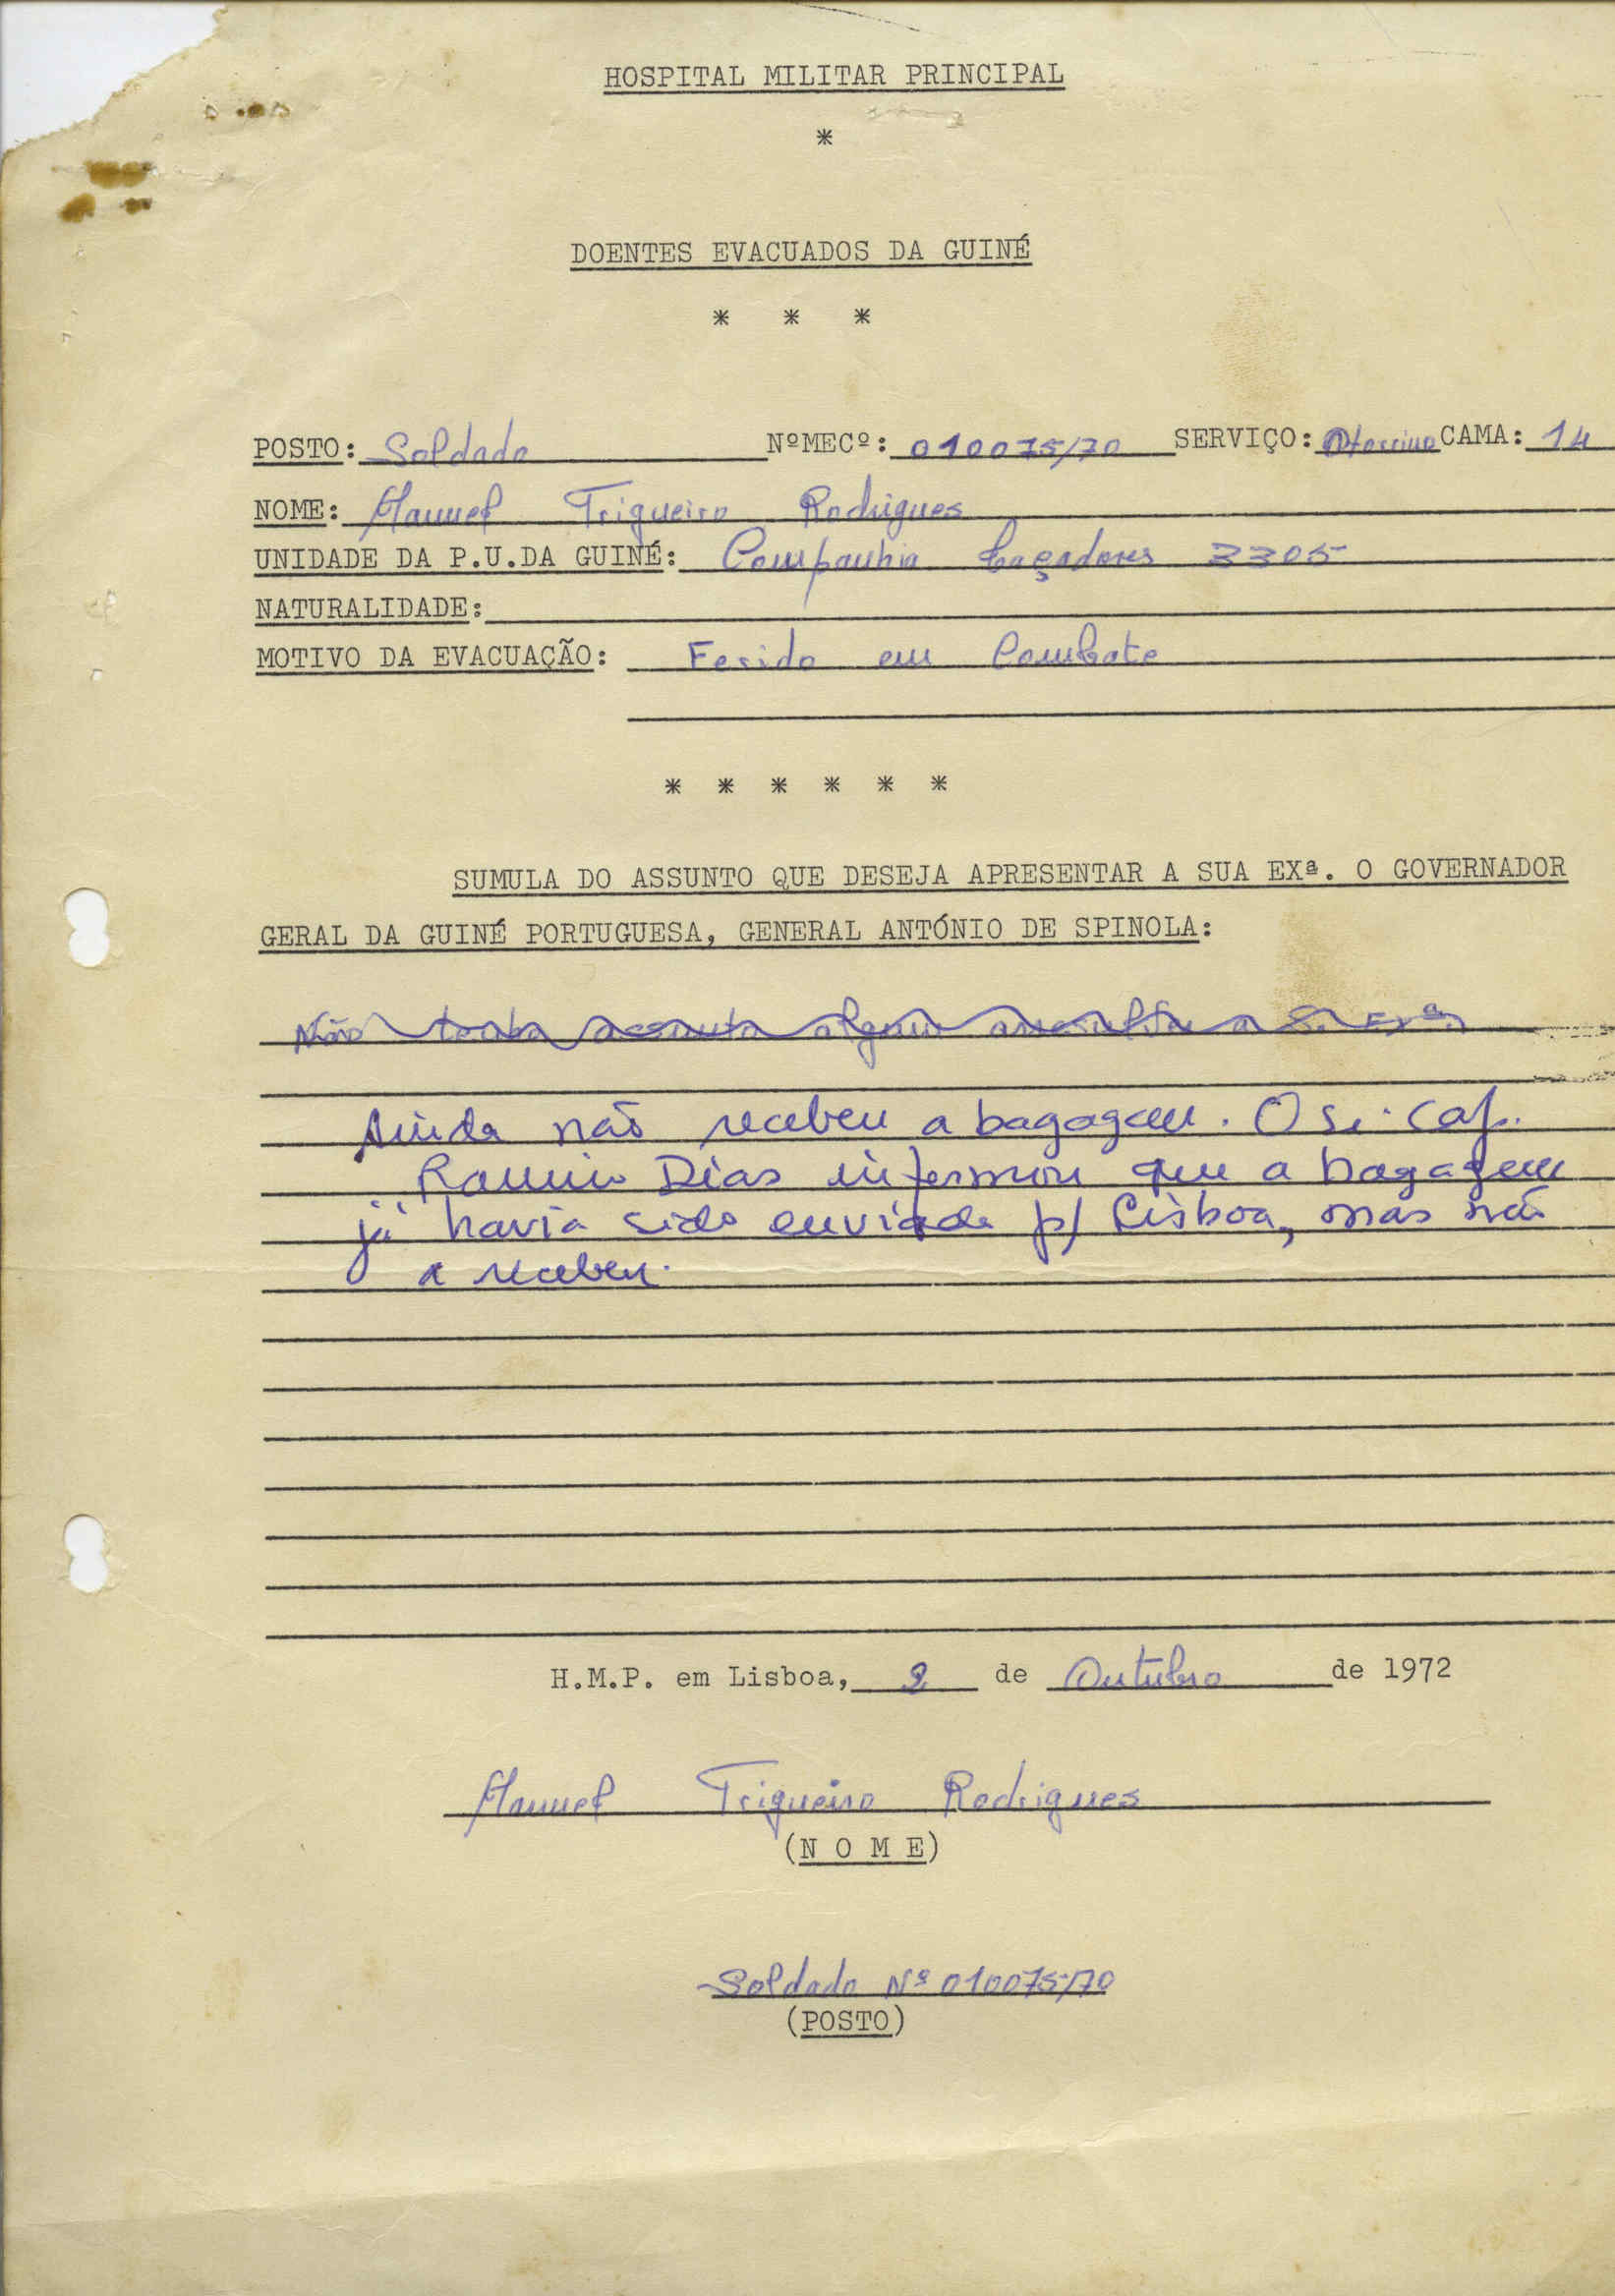 HOSPITAL MILITAR PRINCIPAL
*
DOENTES EVACUADOS DA GUINÉ
* * *
POSTO: Soldado NºMECº: 010075/70 SERVIÇO: CAMA: 14
NOME: Manuel Trigueiro Rodrigues
UNIDADE DA P.U.DA GUINÉ: Companhia Caçadores 3305
NATURALIDADE:
MOTIVO DA EVACUAÇÃO: Ferido em Combate
* * * * * *
SUMULA DO ASSUNTO QUE DESEJA APRESENTAR A SUA EXª. O GOVERNADOR
GERAL DA GUINÉ PORTUGUESA, GENERAL ANTÓNIO DE SPINOLA:
Não assunto algum a S. Exª.
Ainda não recebeu a bagagem. O Sr. Cap.
Ramiro Dias informou que a bagagem
já havia sido enviada p/ Lisboa, mas não
a recebeu.
H.M.P. em Lisboa, de Outubro de 1972
Manuel Trigueiro Rodrigues
(N O M E)
Soldado Nº 010075/70
(POSTO)